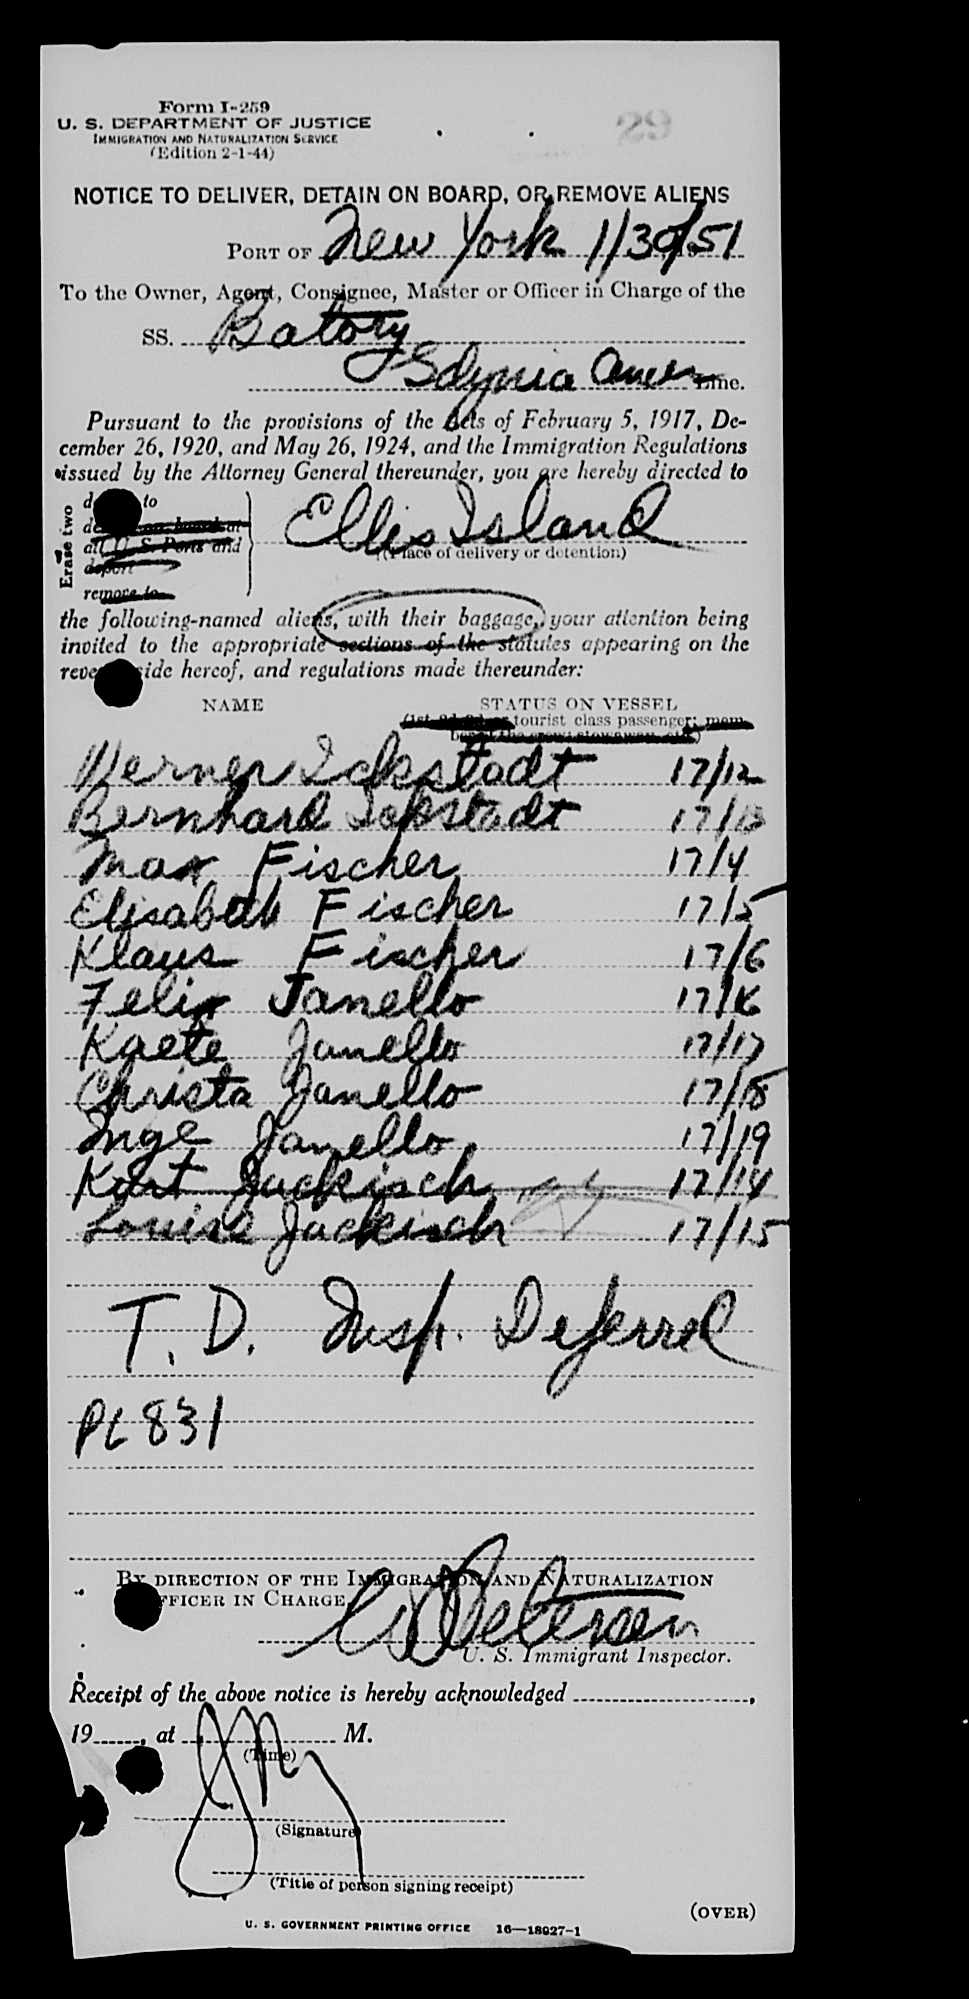 Form I-259
U. S. DEPARTMENT OF JUSTICE
IMMIGRATION AND NATURALIZATION SERVICE
(Edition 2-1-44)
29
NOTICE TO DELIVER, DETAIN ON BOARD, OR REMOVE ALIENS
PORT OF New York 1/30/51
To the Owner, Agent, Consignee, Master or Officer in Charge of the
SS. Batory
Gdynia Amer Line.
Pursuant to the provisions of the Acts of February 5, 1917, De-
cember 26, 1920, and May 26, 1924, and the Immigration Regulations
issued by the Attorney General thereunder, you are hereby directed to
Erase two
to
on board at
all U. S. Ports and
deport
remove to
Ellis Island
(Place of delivery or detention)
the following-named aliens, with their baggage, your attention being
invited to the appropriate sections of the statutes appearing on the
side hereof, and regulations made thereunder:
NAME STATUS ON VESSEL
tourist class passenger; mem-
Werner Ickstadt 17/12
Bernhard Ickstadt 17/13
Max Fischer 17/4
Elisabeth Fischer 17/5
Klaus Fischer 17/6
Felix Janello 17/16
Kaete Janello 17/17
Christa Janello 17/18
Inge Janello 17/19
Kurt Jackisch 17/14
Louise Jackisch 17/15
T. D. Insp. Deferred
PL 831
BY DIRECTION OF THE IMMIGRATION AND NATURALIZATION
OFFICER IN CHARGE
Petersen
U. S. Immigrant Inspector.
Receipt of the above notice is hereby acknowledged ,
19 , at M.
(Time)
(Signature)
(Title of person signing receipt)
(OVER)
U. S. GOVERNMENT PRINTING OFFICE 16—18027-1